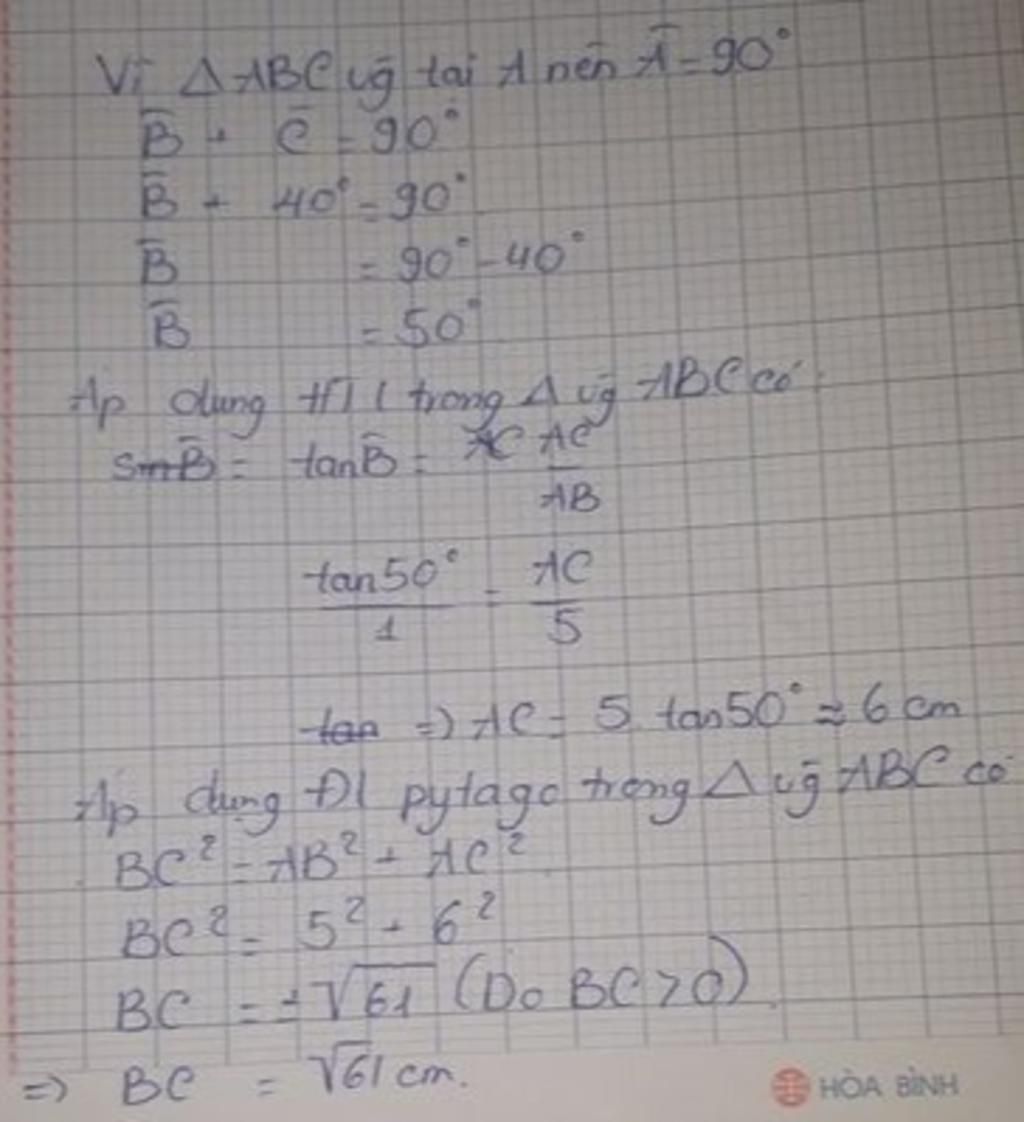 Vì △ABC vg̃ tại A nên A̅ = 90°
B̅ + C̅ = 90°
B̅ + 40° = 90°
B̅ = 90° - 40°
B̅ = 50°
Áp dụng trong △ vg̃ ABC có
sinB̅ = tanB̅ = AC AC/AB
tan50°/1 = AC/5
tan => AC = 5. tan50° ≈ 6 cm
Áp dụng Đl pytago trong △ vg̃ ABC có
BC² = AB² + AC²
BC² = 5² + 6²
BC = ±√61 (Do BC > 0)
=> BC = √61 cm.
HÒA BÌNH